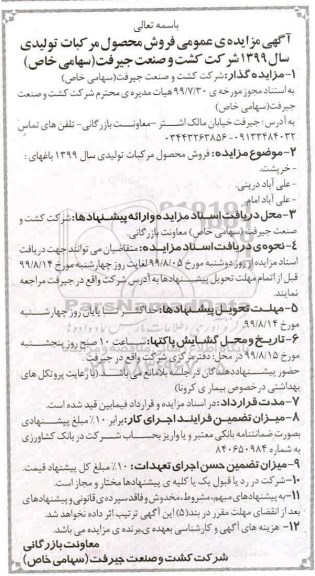 باسمه تعالی
آگهی مزایده ی عمومی فروش محصول مرکبات تولیدی
سال ۱۳۹۹ شرکت کشت و صنعت جیرفت (سهامی خاص)
۱-مزایده گذار: شرکت کشت و صنعت جیرفت(سهامی خاص)
به استناد مجوز مورخه ی ۹۹/۷/۳۰ هیات مدیره ی محترم شرکت کشت و صنعت
جیرفت(سهامی خاص)
به آدرس: جیرفت خیابان مالک اشتر -معاونت بازرگانی- تلفن های تماس
۰۹۱۳۳۴۸۴۰۳۲-۰۳۴۴۳۲۶۳۸۵۶
۲-موضوع مزایده: فروش محصول مرکبات تولیدی سال ۱۳۹۹ باغهای :
- خریشت.
- علی آباد درینی.
- علی آباد امام.
۳- محل دریافت اسناد مزایده وارائه پیشنهادها: شرکت کشت و
صنعت جیرفت (سهامی خاص) معاونت بازرگانی.
۴-نحوه ی دریافت اسناد مزایده: متقاضیان می توانند جهت دریافت
اسناد مزایده از روز دوشنبه مورخ ۹۹/۸/۰۵ لغایت روز چهارشنبه مورخ ۹۹/۸/۱۴
قبل از اتمام مهلت تحویل پیشنهادها به آدرس شرکت واقع در جیرفت مراجعه
نمایند.
۵-مهلت تحویل پیشنهادها: حداکثر تا پایان روز چهارشنبه
مورخ ۹۹/۸/۱۴.
۶-تاریخ و محل گشایش پاکتها: ساعت ۱۰ صبح روز پنجشنبه
مورخ ۹۹/۸/۱۵ در محل: دفتر مرکزی شرکت واقع در جیرفت.
حضور پیشنهاددهندگان در جلسه بلامانع می باشد.(با رعایت پروتکل های
بهداشتی در خصوص بیماری کرونا)
۷-مدت قرارداد: در اسناد مزایده و قرارداد فیمابین قید شده است.
۸-میزان تضمین فرایند اجرای کار: برابر ۱۰٪ مبلغ پیشنهادی
بصورت ضمانتنامه بانکی معتبر و یا واریز بحساب شرکت در بانک کشاورزی
به شماره ۸۴۰۶۵۰۹۸۴
۹-میزان تضمین حسن اجرای تعهدات: ۱۰٪ مبلغ کل پیشنهاد قیمت.
۱۰-شرکت در رد یا قبول یک یا کلیه ی پیشنهادها مختار و مجاز است.
۱۱-به پیشنهادهای مبهم، مشروط، مخدوش و فاقد سپرده ی قانونی و پیشنهادهای
بعد از انقضای مهلت مقرر در بند(۵) این آگهی ترتیب اثر داده نخواهد شد.
۱۲- هزینه های آگهی و کارشناسی بعهده ی برنده ی مزایده می باشد.
معاونت بازرگانی
شرکت کشت و صنعت جیرفت (سهامی خاص)